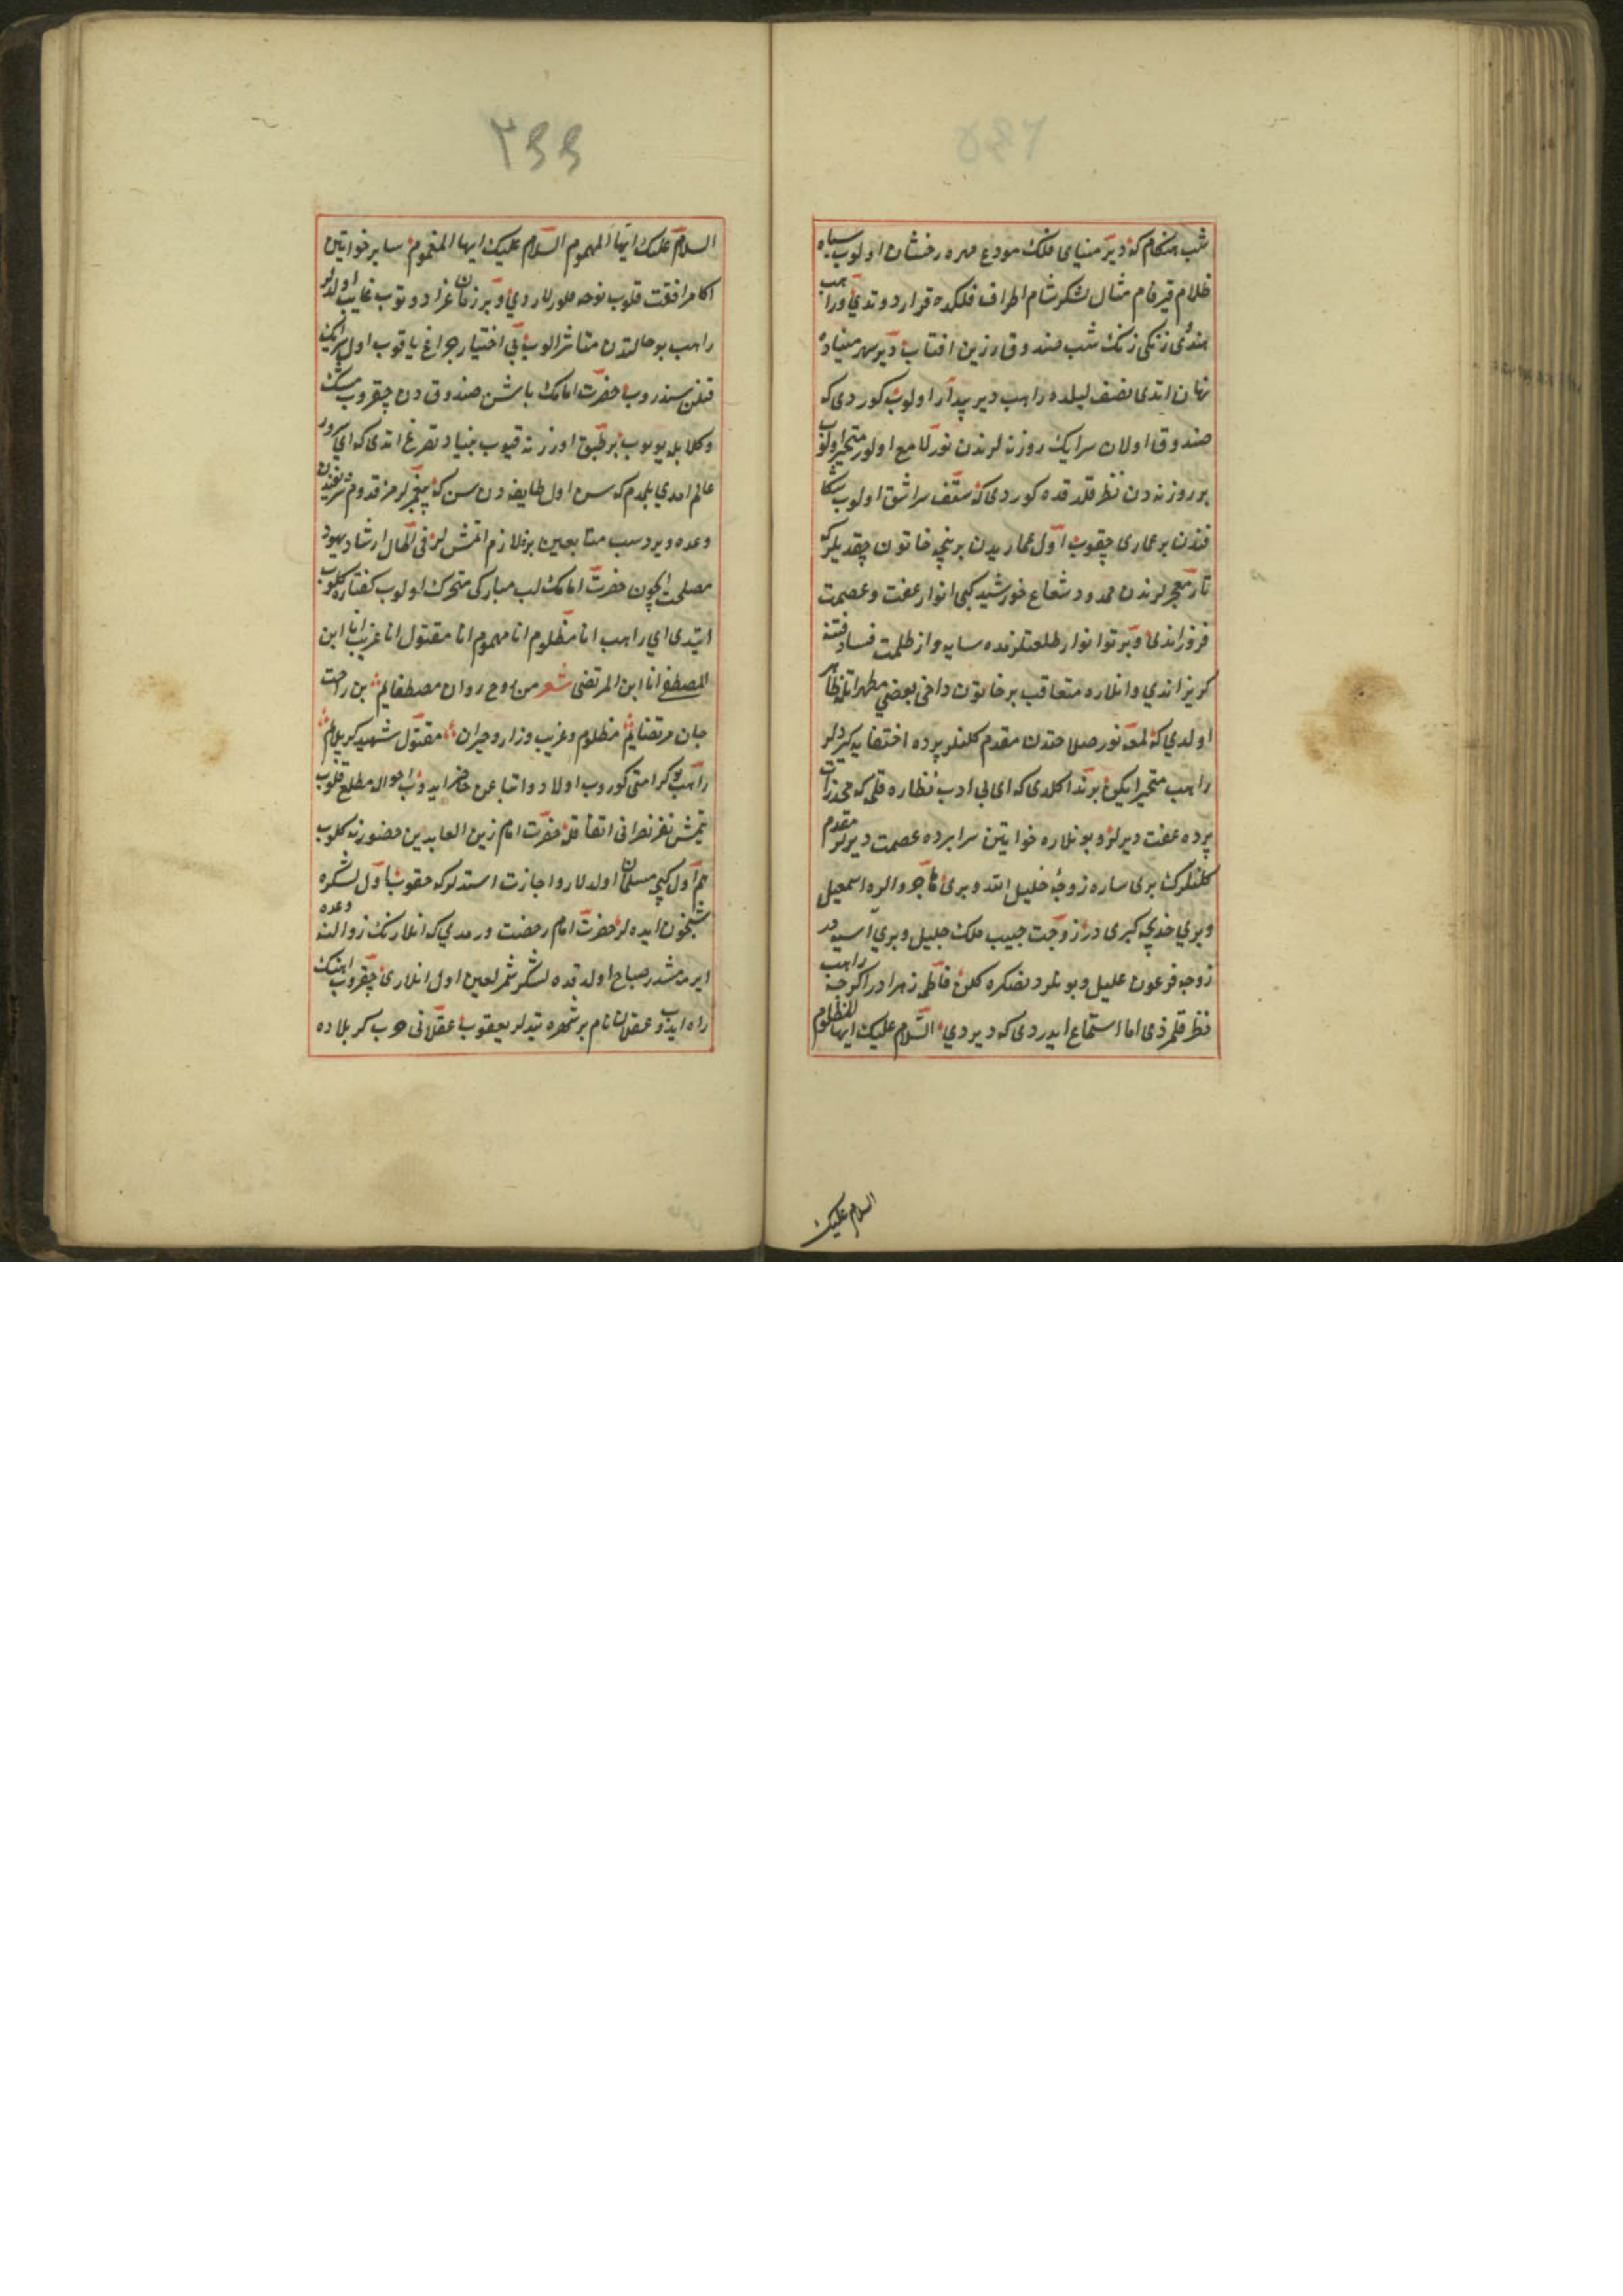 شب هنكام كه دير مينياى فلك مودع مهره رخشان اولوب سپاه
ظلام قيرفام مثال لشكر شام اطراف فلكده قرار دوتدى وراهب
هندئ زنكى رنك شب صندوق زرين افتاب دير سر ميناده
نهان اتدى نصف ليلده راهب دير بيدار اولوب كوردى كه
صندوق اولان سرايك روزنه لرندن نور لامع اولور متحير اولوب
بر روزنه دن نظر قلدقده كوردى كه سقف سرا شق اولوب
بر عمارى چقوب اول عماريدن بر نيچه خاتون چقديلر كه
تار معجرلرندن ممدود شعاع خورشيد كبى انوار عفت و عصمت
فروزاندى و پرتو انوار طلعتلرنده سايه وار ظلمت فساد فتنه
كريزاندى وانلاره متعاقب بر خاتون داخى بعضى مطهراتله ظاهر
اولدى كه لمعه نور صلاحتدن مقدم كلنلر پرده اختفايه كيرديلر
راهب متحير ايكن بر ندا كلدى كه اى بى ادب نظاره قلمه كه مخدرات
پرده عفت ديرلر و بونلاره خواتين سرابرده عصمت ديرلر مقدم
كلنلرك برى ساره زوجۀ خليل الله و برى هاجر والده اسمعيل
وبرى خديجه كبرى در زوجت حبيب ملك جليل و برى آسيه در
زوجه فرعون عليل و بونلردنصكره كلن فاطمه زهرا در اكرچه راهب
نظر قلمزدى اما استماع ايدردى كه ديردى السلام عليك ايها المظلوم
السلام عليك
٢٤٤
السلام عليك ايها المهموم السلام عليك ايها المغموم ساير خواتين
اكا مرافقت قلوب نوحه قلورلاردى و بر زمان عزا دوتوب غايب اولدلر
راهب بو حالتدن متاثر الوب بى اختيار چراغ ياقوب اول سرايك
قفلن سندروب حضرت امامك باشن صندوقدن چقروب مشك
وكلابله يويوب بر طبق اوزرنه قيوب بنياد تضرع اتدى كه اى سرور
عالم امدى بلدم كه سن اول طايفه دن سن كه پيغمبرلرمز قدوم شريفندن
وعده ويردسب متابعين بزه لازم اتمش لر فى الحال ارشاد يهود
مصلحت ايچون حضرت امامك لب مباركى متحرك اولوب كفتاره كلوب
ايتدى اى راهب انا مظلوم انا مهموم انا مقتول انا غريب انا ابن
المصطفى انا ابن المرتضى شعر من روح روان مصطفايم بن راحت
جان مرتضايم مظلوم وغريب وزار و حيران مقتول شهيد كربلايم
راهب بو كرامتى كوروب اولاد و اتباعن حاضر ايدوب احواله مطلع قلوب
يتمش نفر نصرانى اتفاقله حضرت امام زين العابدين حضورنه كلوب
هم اول كيجه مسلمان اولدلار واجازت استدلر كه چقوب اول لشكره
شبخون ايده لر حضرت امام رخصت ورمدى كه انلارنك زوالنه وعده
ايرمشدر صباح اولدقده لشكر شمر لعين اول انلارى چقروب اهنك
راه ايدوب عسقلان نام بر شهره يتدلر يعقوب عسقلانى حرب كربلاده